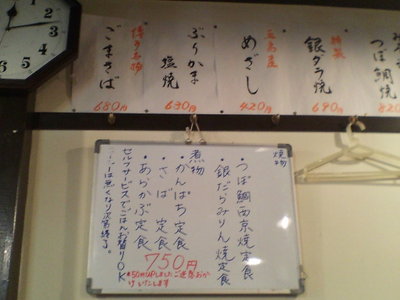 つぼ鯛焼
820
特製
銀ダラ焼
690円
五島産
めざし
420円
ぶりかま
塩焼
630円
博多名物
ごまさば
680円
焼物
・つぼ鯛西京焼定食
・銀だらみりん焼定食
煮物
・かんぱち定食
・さば定食
・あらかぶ定食
750円
セルフサービスでごはんお替りOK
は無くなり次第終了。
※50円UPしましたご迷惑おか
けいたします